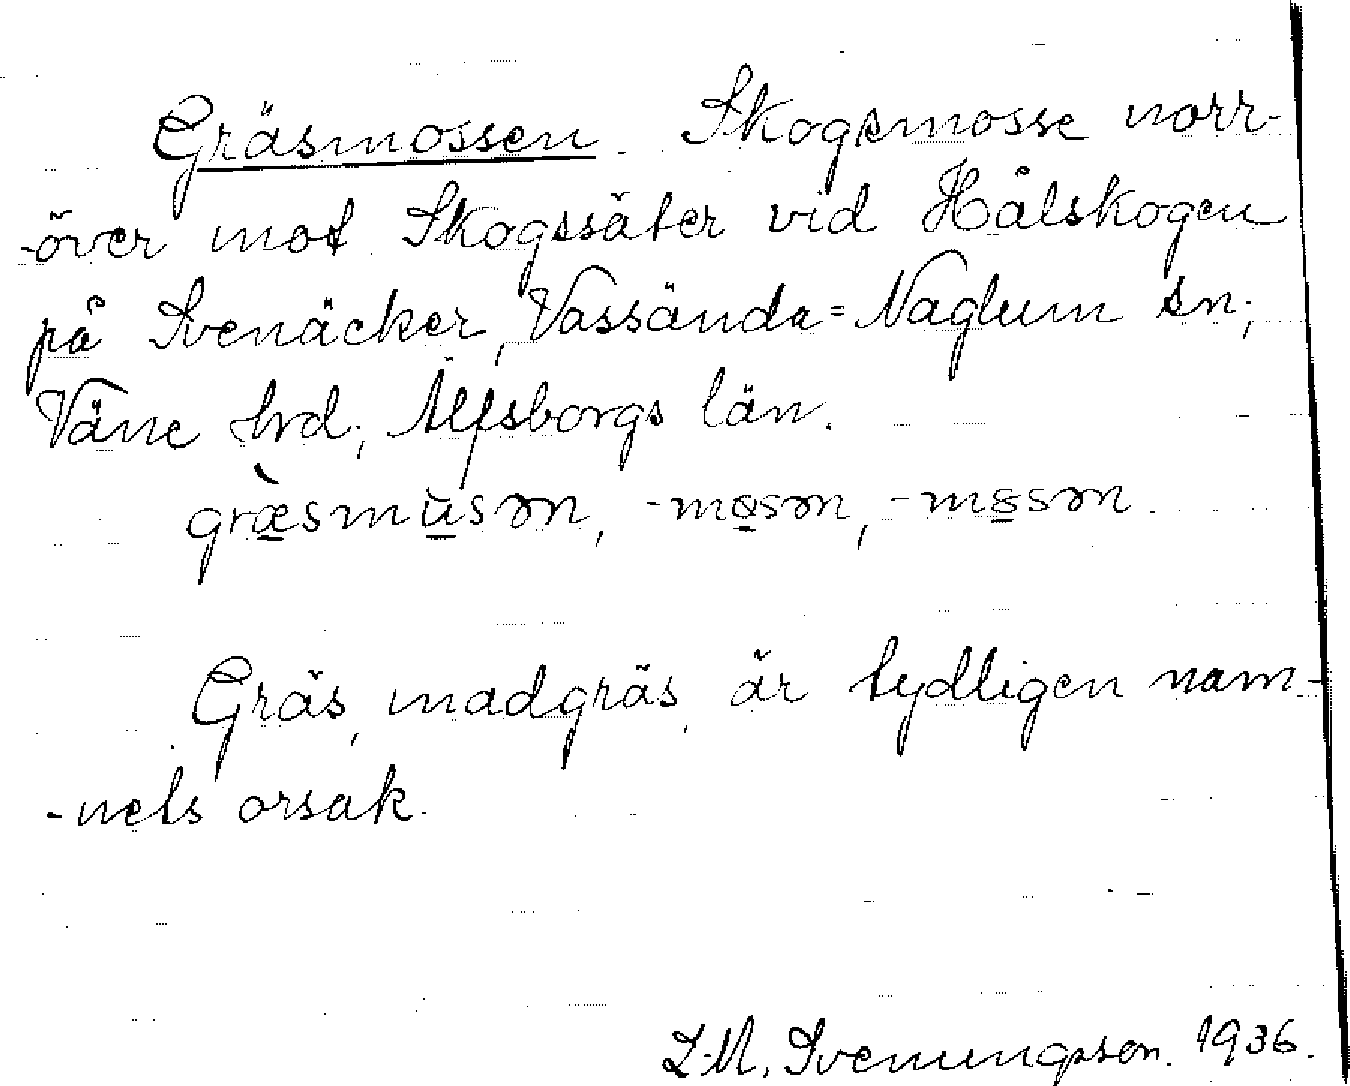 Gräsmossen. Skogsmosse norr-
-över mot Skogssäter vid Hålskogen
på Svenäcker, Vassända=Naglum sn,
Väne hrd, Älfsborgs län.
græ̀smu̇sən, -mo̱sən, -mɷsən.
Gräs, madgräs, är tydligen nam-
-nets orsak.
L.M. Svenungsson. 1936.